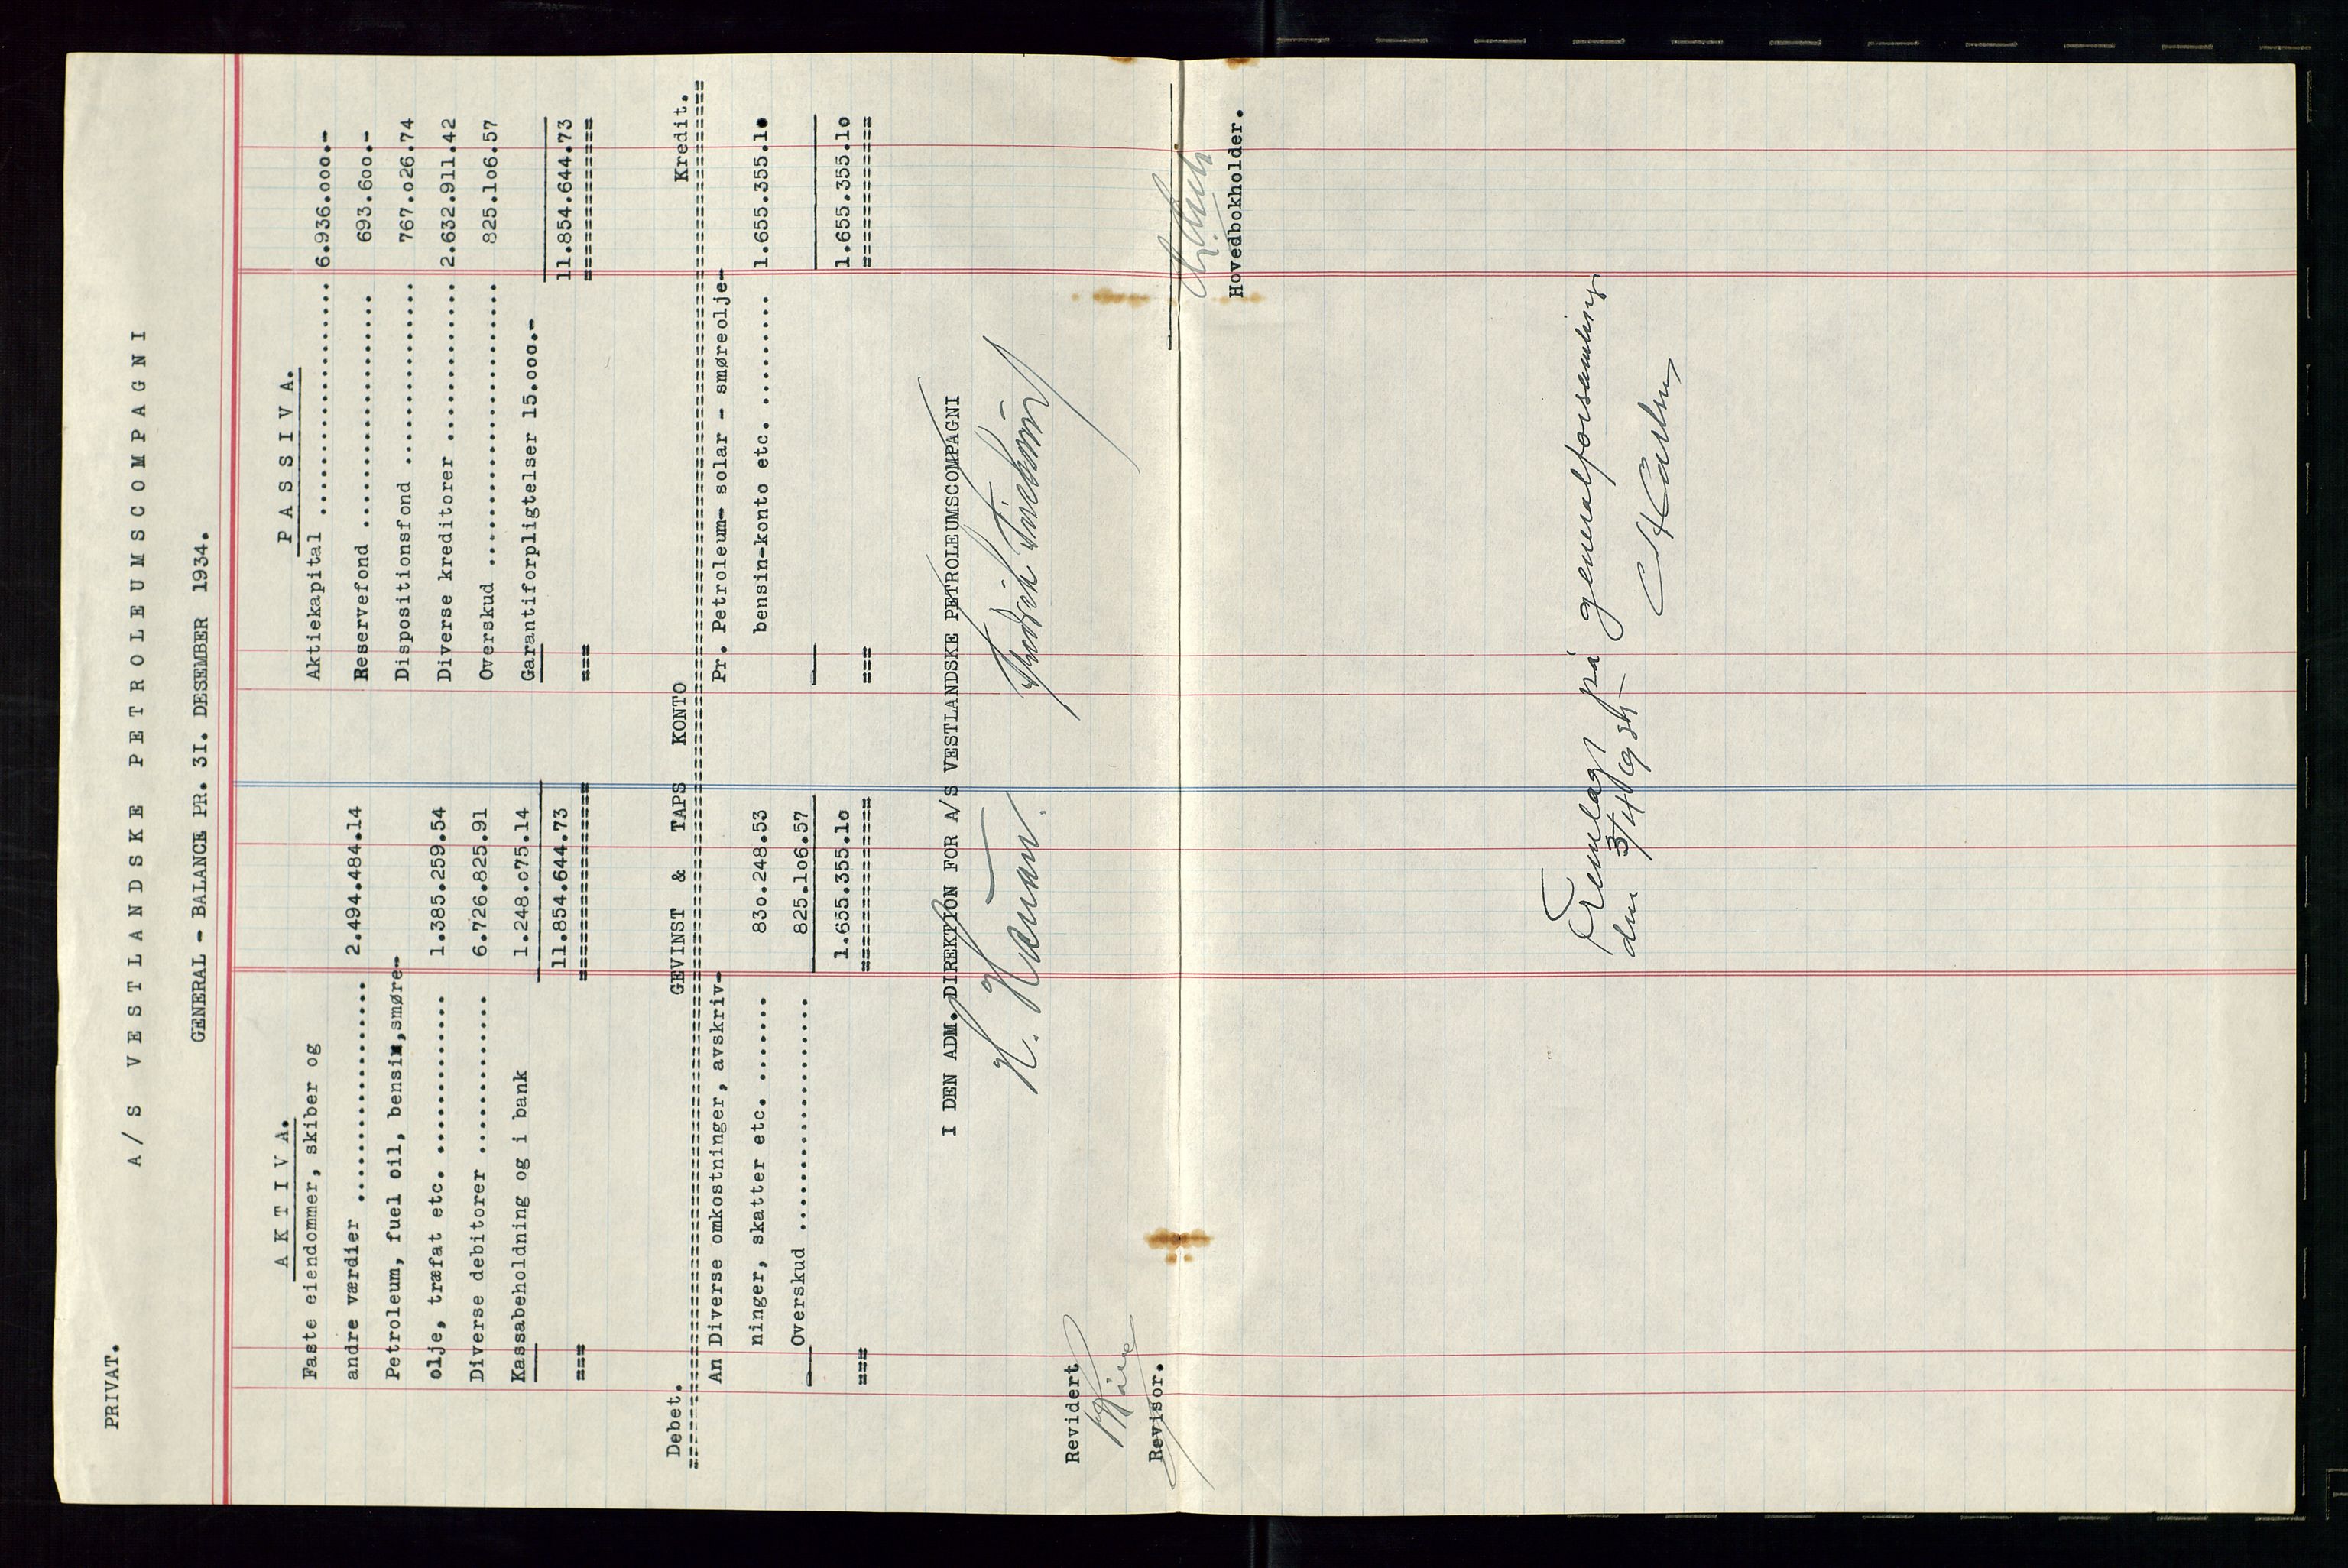 PRIVAT.
A/S VESTLANDSKE PETROLEUMSCOMPAGNI
GENERAL - BALANCE PR. 31. DESEMBER 1934.
AKTIVA.
Faste eiendommer, skiber og
andre værdier ........................ 2.494.484.14
Petroleum, fuel oil, bensin,smøre-
olje, træfat etc. ................ 1.385.259.54
Diverse debitorer ................ 6.726.825.91
Kassabeholdning og i bank 1.248.075.14
11.854.644.73
PASSIVA.
Aktiekapital ........................ 6.936.000.-
Reservefond ........................ 693.600.-
Dispositionsfond .................. 767.026.74
Diverse kreditorer ................ 2.632.911.42
Overskud ............................ 825.106.57
Garantiforpligtelser 15.000.-
11.854.644.73
GEVINST & TAPS KONTO
Debet. Kredit.
An Diverse omkostninger, avskriv-
ninger, skatter etc. ........ 830.248.53
Overskud ........................ 825.106.57
1.655.355.10
Pr. Petroleum- solar - smøreolje-
bensin-konto etc. .......... 1.655.355.10
1.655.355.10
I DEN ADM. DIREKTION FOR A/S VESTLANDSKE PETROLEUMSCOMPAGNI
Revidert
Revisor.
Hovedbokholder.
Fremlagt på generalforsamling
den 3/4